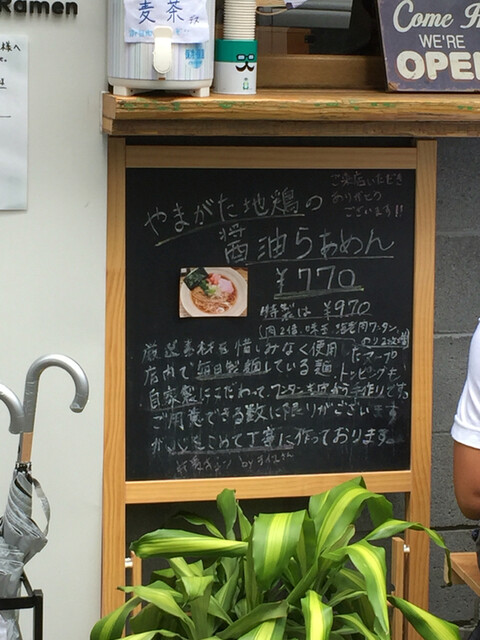 Ramen
麦茶
Come In
WE'RE
OPEN
ご来店いただき
ありがとう
ございます!!
やまがた地鶏の
醤油らぁめん
¥770
特製は ¥970
厳選素材を惜しみなく使用したスープ
店内で毎日製麺している麺、トッピングも
自家製にこだわって、ワンタンも手作りです。
ご用意できる数に限りがございます
が、心をこめて丁寧に作っております。